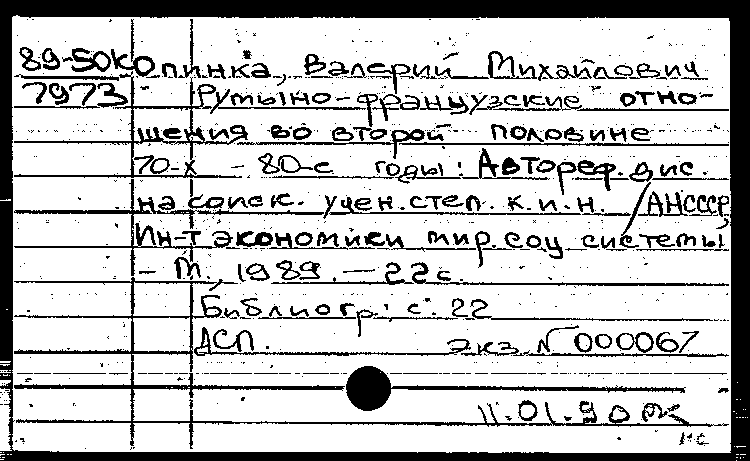 89-50К Опинка, Валерий Михайлович
7973 Румыно-французские отно-
шения во второй половине
70-х - 80-е годы: Автореф. дис.
на соиск. учен. степ. к.и.н. / АН СССР,
Ин-т экономики мир. соц системы
- М., 1989. - 22 с.
Библиогр: с. 22
ДСП. экз. N 000067
11.01.90 РК
МС